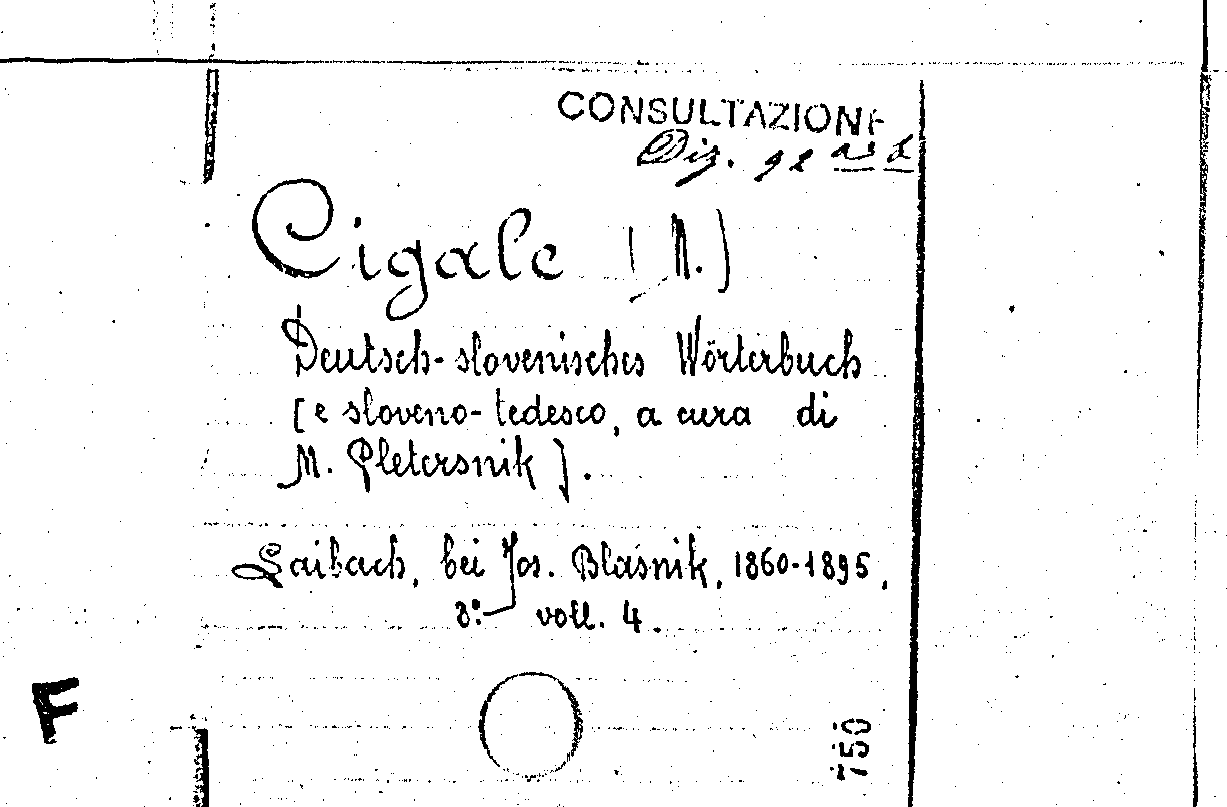 CONSULTAZIONE
Diz. 92 a-b
Cigale (M.)
Deutsch-slovenisches Wörterbuch
[e sloveno-tedesco, a cura di
M. Pletersnik].
Laibach, bei Jos. Blasnik, 1860-1895,
8º voll. 4.
F
750